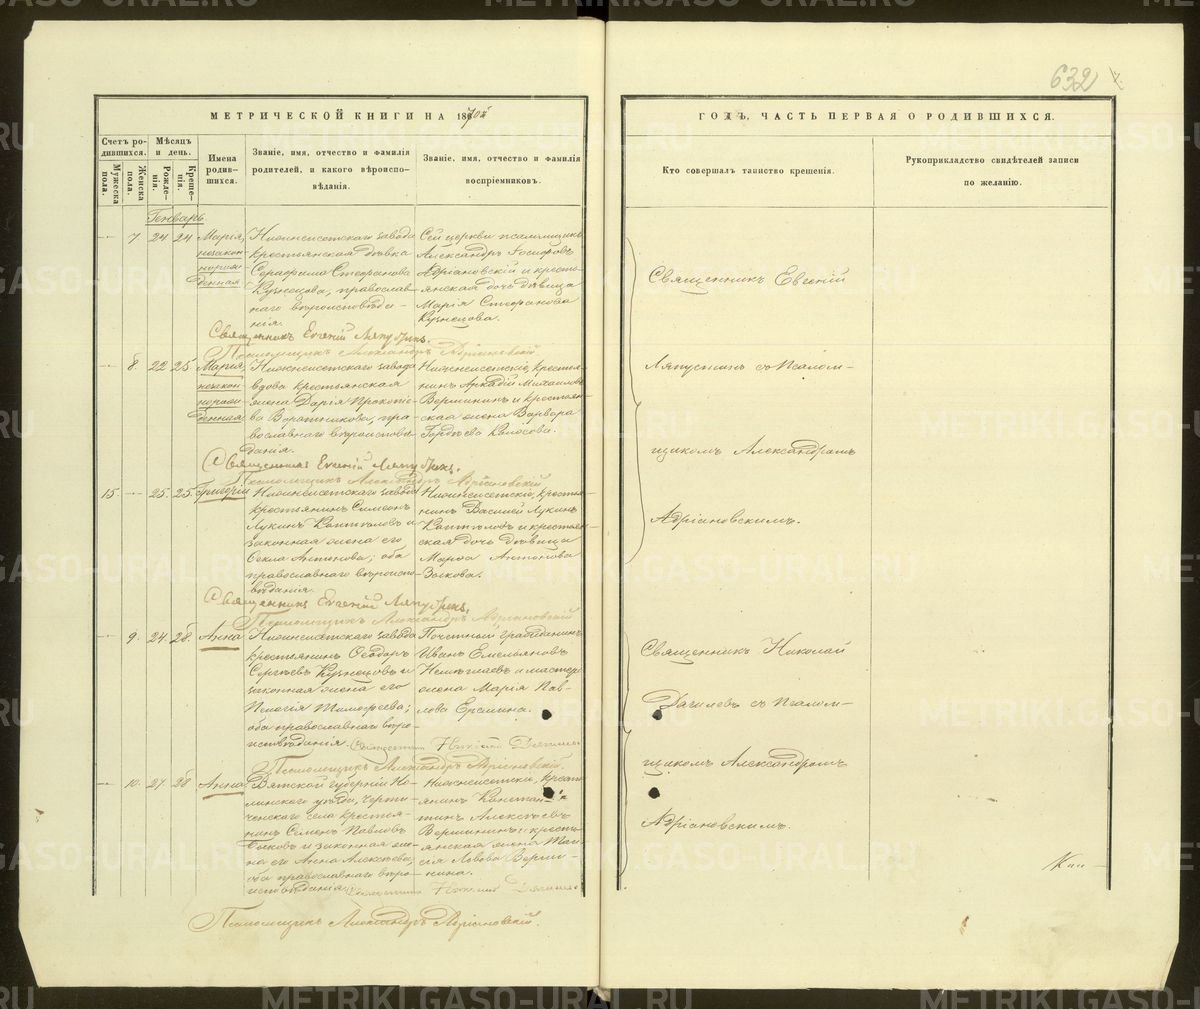 632
МЕТРИЧЕСКОЙ КНИГИ НА 1870й
ГОДЪ, ЧАСТЬ ПЕРВАЯ О РОДИВШИХСЯ.
Счетъ родившихся.
Мужеска пола.
Женска пола.
Мѣсяцъ и день.
Рожденія.
Крещенія.
Имена родившихся.
Званіе, имя, отчество и фамилія родителей, и какого вѣроисповѣданія.
Званіе, имя, отчество и фамилія воспріемниковъ.
Кто совершалъ таинство крещенія.
Рукоприкладство свидѣтелей записи по желанію.
Генварь
7 24 24 Марія, незаконнорожденная
Нижнеисетскаго завода
крестьянская дѣвка
Серафима Стефанова
Кузнецова, православнаго вѣроисповѣданія.
Сей церкви псаломщикъ
Александръ Іосифовъ
Адріановскій и крестьянская дочь дѣвица
Марія Стефанова
Кузнецова.
Священникъ Евгеній Ляпустинъ.
Псаломщикъ Александръ Адріановскій
8. 22 25 Марія, незаконнорожденная
Нижнеисетскаго завода
вдова крестьянская
жена Дарія Прокопіева
православнаго вѣроисповѣданія.
Нижнеисетскіе, крестьянинъ Аркадій Михаиловъ
Вершининъ и крестьянская жена Варвара
Гордѣева Колосова.
Священникъ Евгеній Ляпустинъ.
Псаломщикъ Александръ Адріановскій
15 25. 25. Григорій
Нижнеисетскаго завода
крестьянинъ Симеонъ
Лукинъ и
законная жена его
Фекла Антонова; оба
православнаго вѣроисповѣданія.
Нижнеисетскіе, крестьянинъ Василій Лукинъ
и крестьянская дочь дѣвица
Марѳа Антонова
Зыкова.
Священникъ Евгеній Ляпустинъ.
Псаломщикъ Александръ Адріановскій
9. 24. 28. Анна
Нижнеисетскаго завода
крестьянинъ Ѳеодоръ
Сергѣевъ Кузнецовъ и
законная жена его
Пелагія Тимофеева;
оба православнаго вѣроисповѣданія.
Почетный гражданинъ
Иванъ Емельяновъ
и мастера
жена Марія Павлова
Священникъ Николай
Псаломщикъ Александръ Адріановскій.
10. 27. 28 Анна
Вятской губерніи Нолинскаго уѣзда,
села крестьянинъ Семенъ Павловъ
и законная жена его Анна Алексѣева,
оба православнаго вѣроисповѣданія.
Нижнеисетскіе, крестьянинъ Константинъ Алексѣевъ
Вершининъ и крестьянская жена
Львова Вершинина.
Священникъ Николай
Псаломщикъ Александръ Адріановскій.
Священникъ Евгеній
Ляпустинъ съ Псаломщикомъ Александромъ
Адріановскимъ.
Священникъ Николай
съ Псаломщикомъ Александромъ
Адріановскимъ.
METRIKI.GASO-URAL.RU